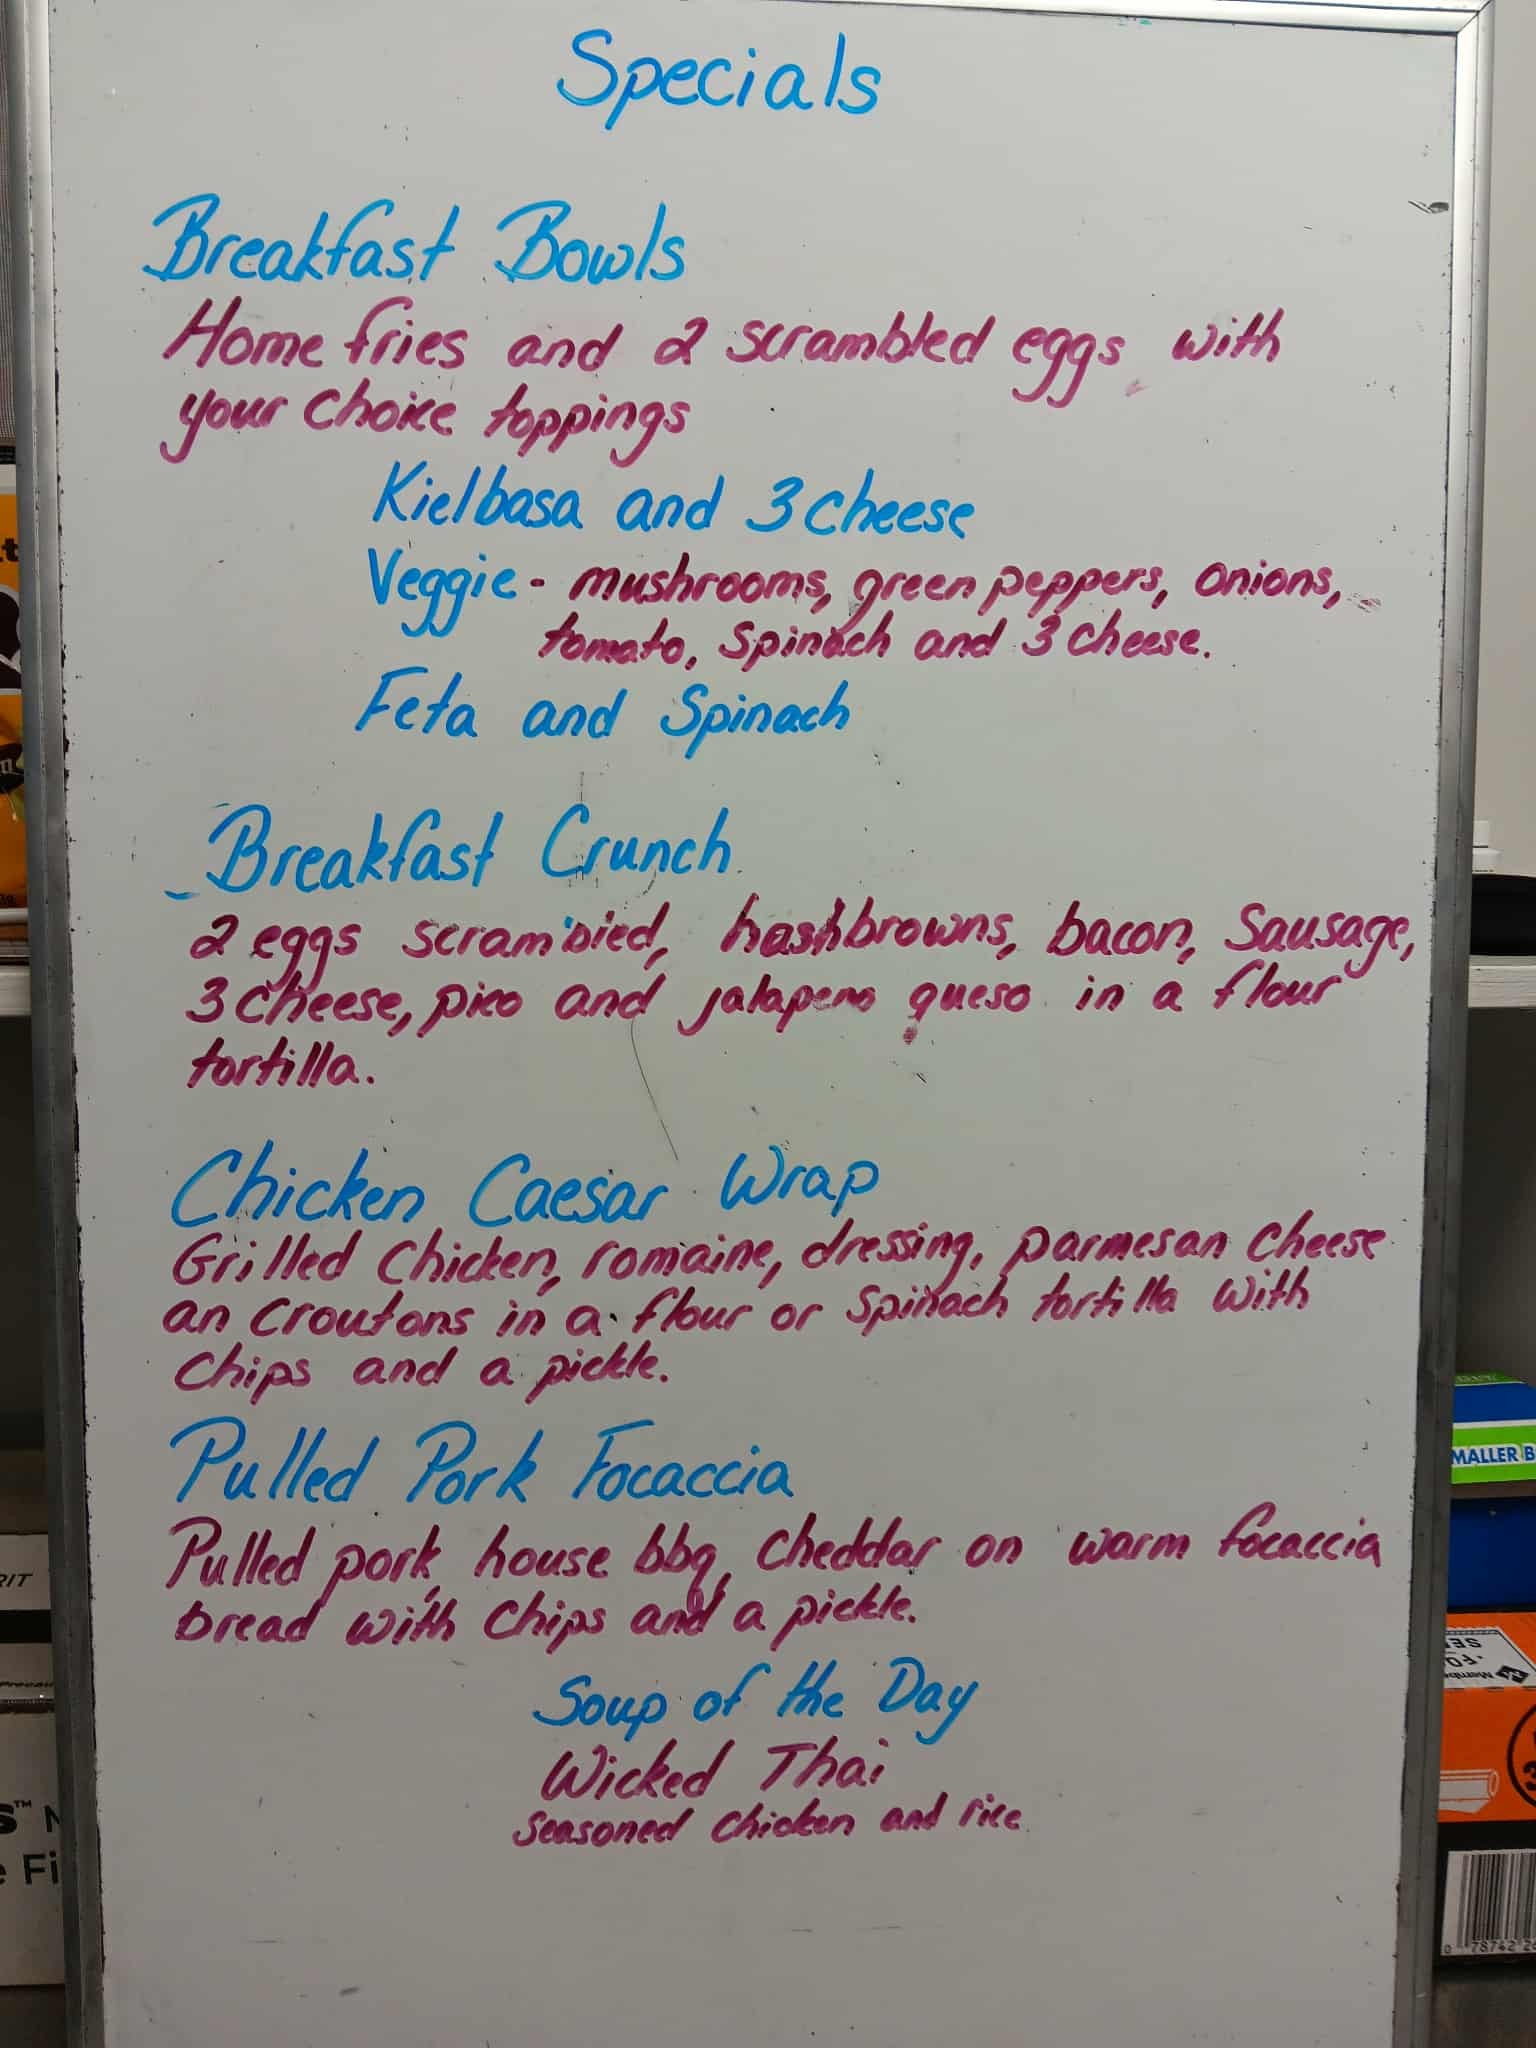 Specials
Breakfast Bowls
Home fries and 2 scrambled eggs with
your choice toppings
Kielbasa and 3 cheese
Veggie - mushrooms, green peppers, onions,
tomato, spinach and 3 cheese.
Feta and Spinach
Breakfast Crunch
2 eggs scrambled, hashbrowns, bacon, Sausage,
3 cheese, pico and jalapeno queso in a flour
tortilla.
Chicken Caesar Wrap
Grilled Chicken, romaine, dressing, parmesan cheese
an croutons in a flour or spinach tortilla with
chips and a pickle.
Pulled Pork Focaccia
Pulled pork, house bbq, cheddar on warm focaccia
bread with chips and a pickle.
Soup of the Day
Wicked Thai
Seasoned chicken and rice
MALLER B
RIT